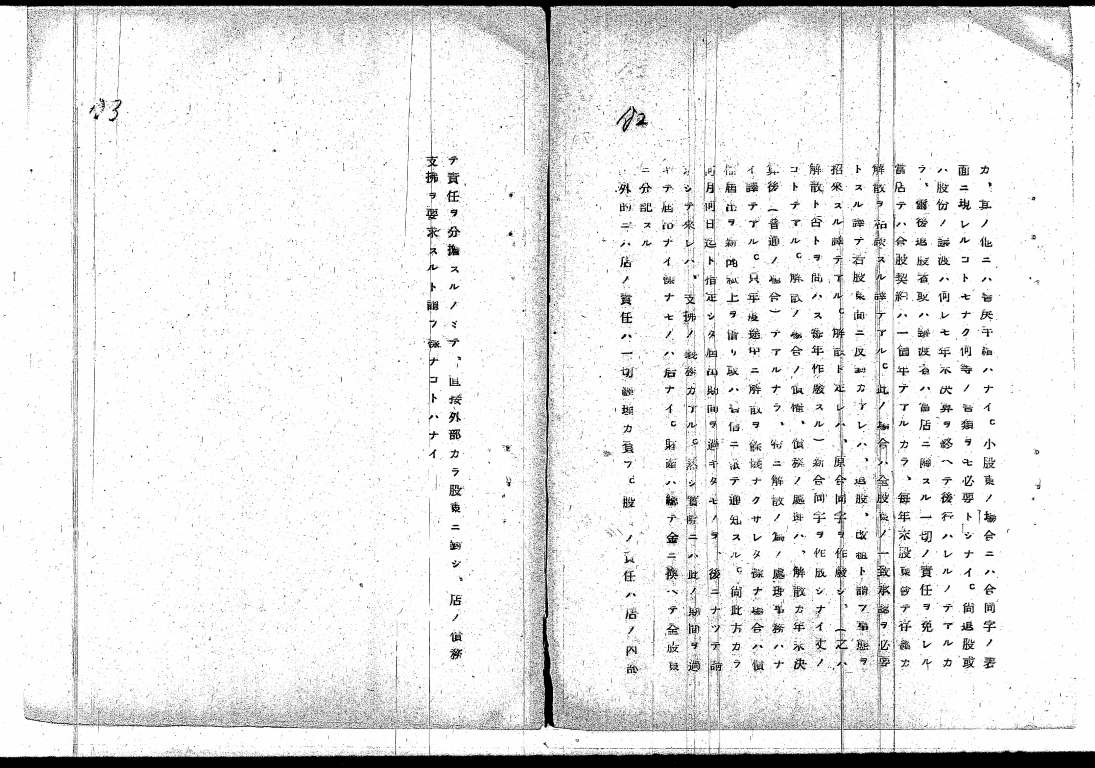 42
カ、其ノ他ニハ署決干論ハナイ。小股東ノ場合ニハ合同字ノ署
面ニ現レルコトモナク何等ノ書類ヲモ必要トシナイ。尚退股或
ハ股份ノ譲渡ハ何レモ年末決算ヲ終ヘテ後行ハレルノテアルカ
ラ、爾後退股者或ハ譲渡者ハ當店ニ關スル一切ノ責任ヲ免レル
當店テハ合股契約ハ一個年テアルカラ、毎年末股東會テ存續カ
解散ヲ相談スル譯テアル。此ノ場合ハ全股東ノ一致承認ヲ必要
トスル譯テ若股東面ニ反對カアレハ、退股、改組ト謂フ事態ヲ
招來スル譯テアル。解散ト定レハ、原合同字ヲ作廢シ、(之ハ
解散ト否トヲ問ハス毎年作廢スル)新合同字ヲ作成シナイ丈ノ
コトテアル。解散ノ場合ノ債權、債務ノ處理ハ、解散カ年末決
算後(普通ノ場合)テアルナラ、特ニ解散ノ爲ノ處理事務ハナ
イ譯テアル。只年度途中ニ解散ヲ餘儀ナクサレタ様ナ場合ハ債
權届出ヲ新聞紙上ヲ借リ或ハ書信ニ依テ通知スル。尚此方カラ
何月何日迄ト指定シタ届出期間ヲ過キタモノヲ、後ニナツテ請
求シテ來レハ、支拂ノ義務カアル。然シ實際ニハ此ノ期間ヲ過
キテ届出ナイ様ナモノハ居ナイ。財産ハ總テ金ニ換ヘテ金股東
ニ分配スル
外的ニハ店ノ責任ハ一切經理カ負フ。股 ノ責任ハ店ノ内部
43
テ責任ヲ分擔スルノミテ、直接外部カラ股東ニ對シ、店ノ債務
支拂ヲ要求スルト謂フ様ナコトハナイ